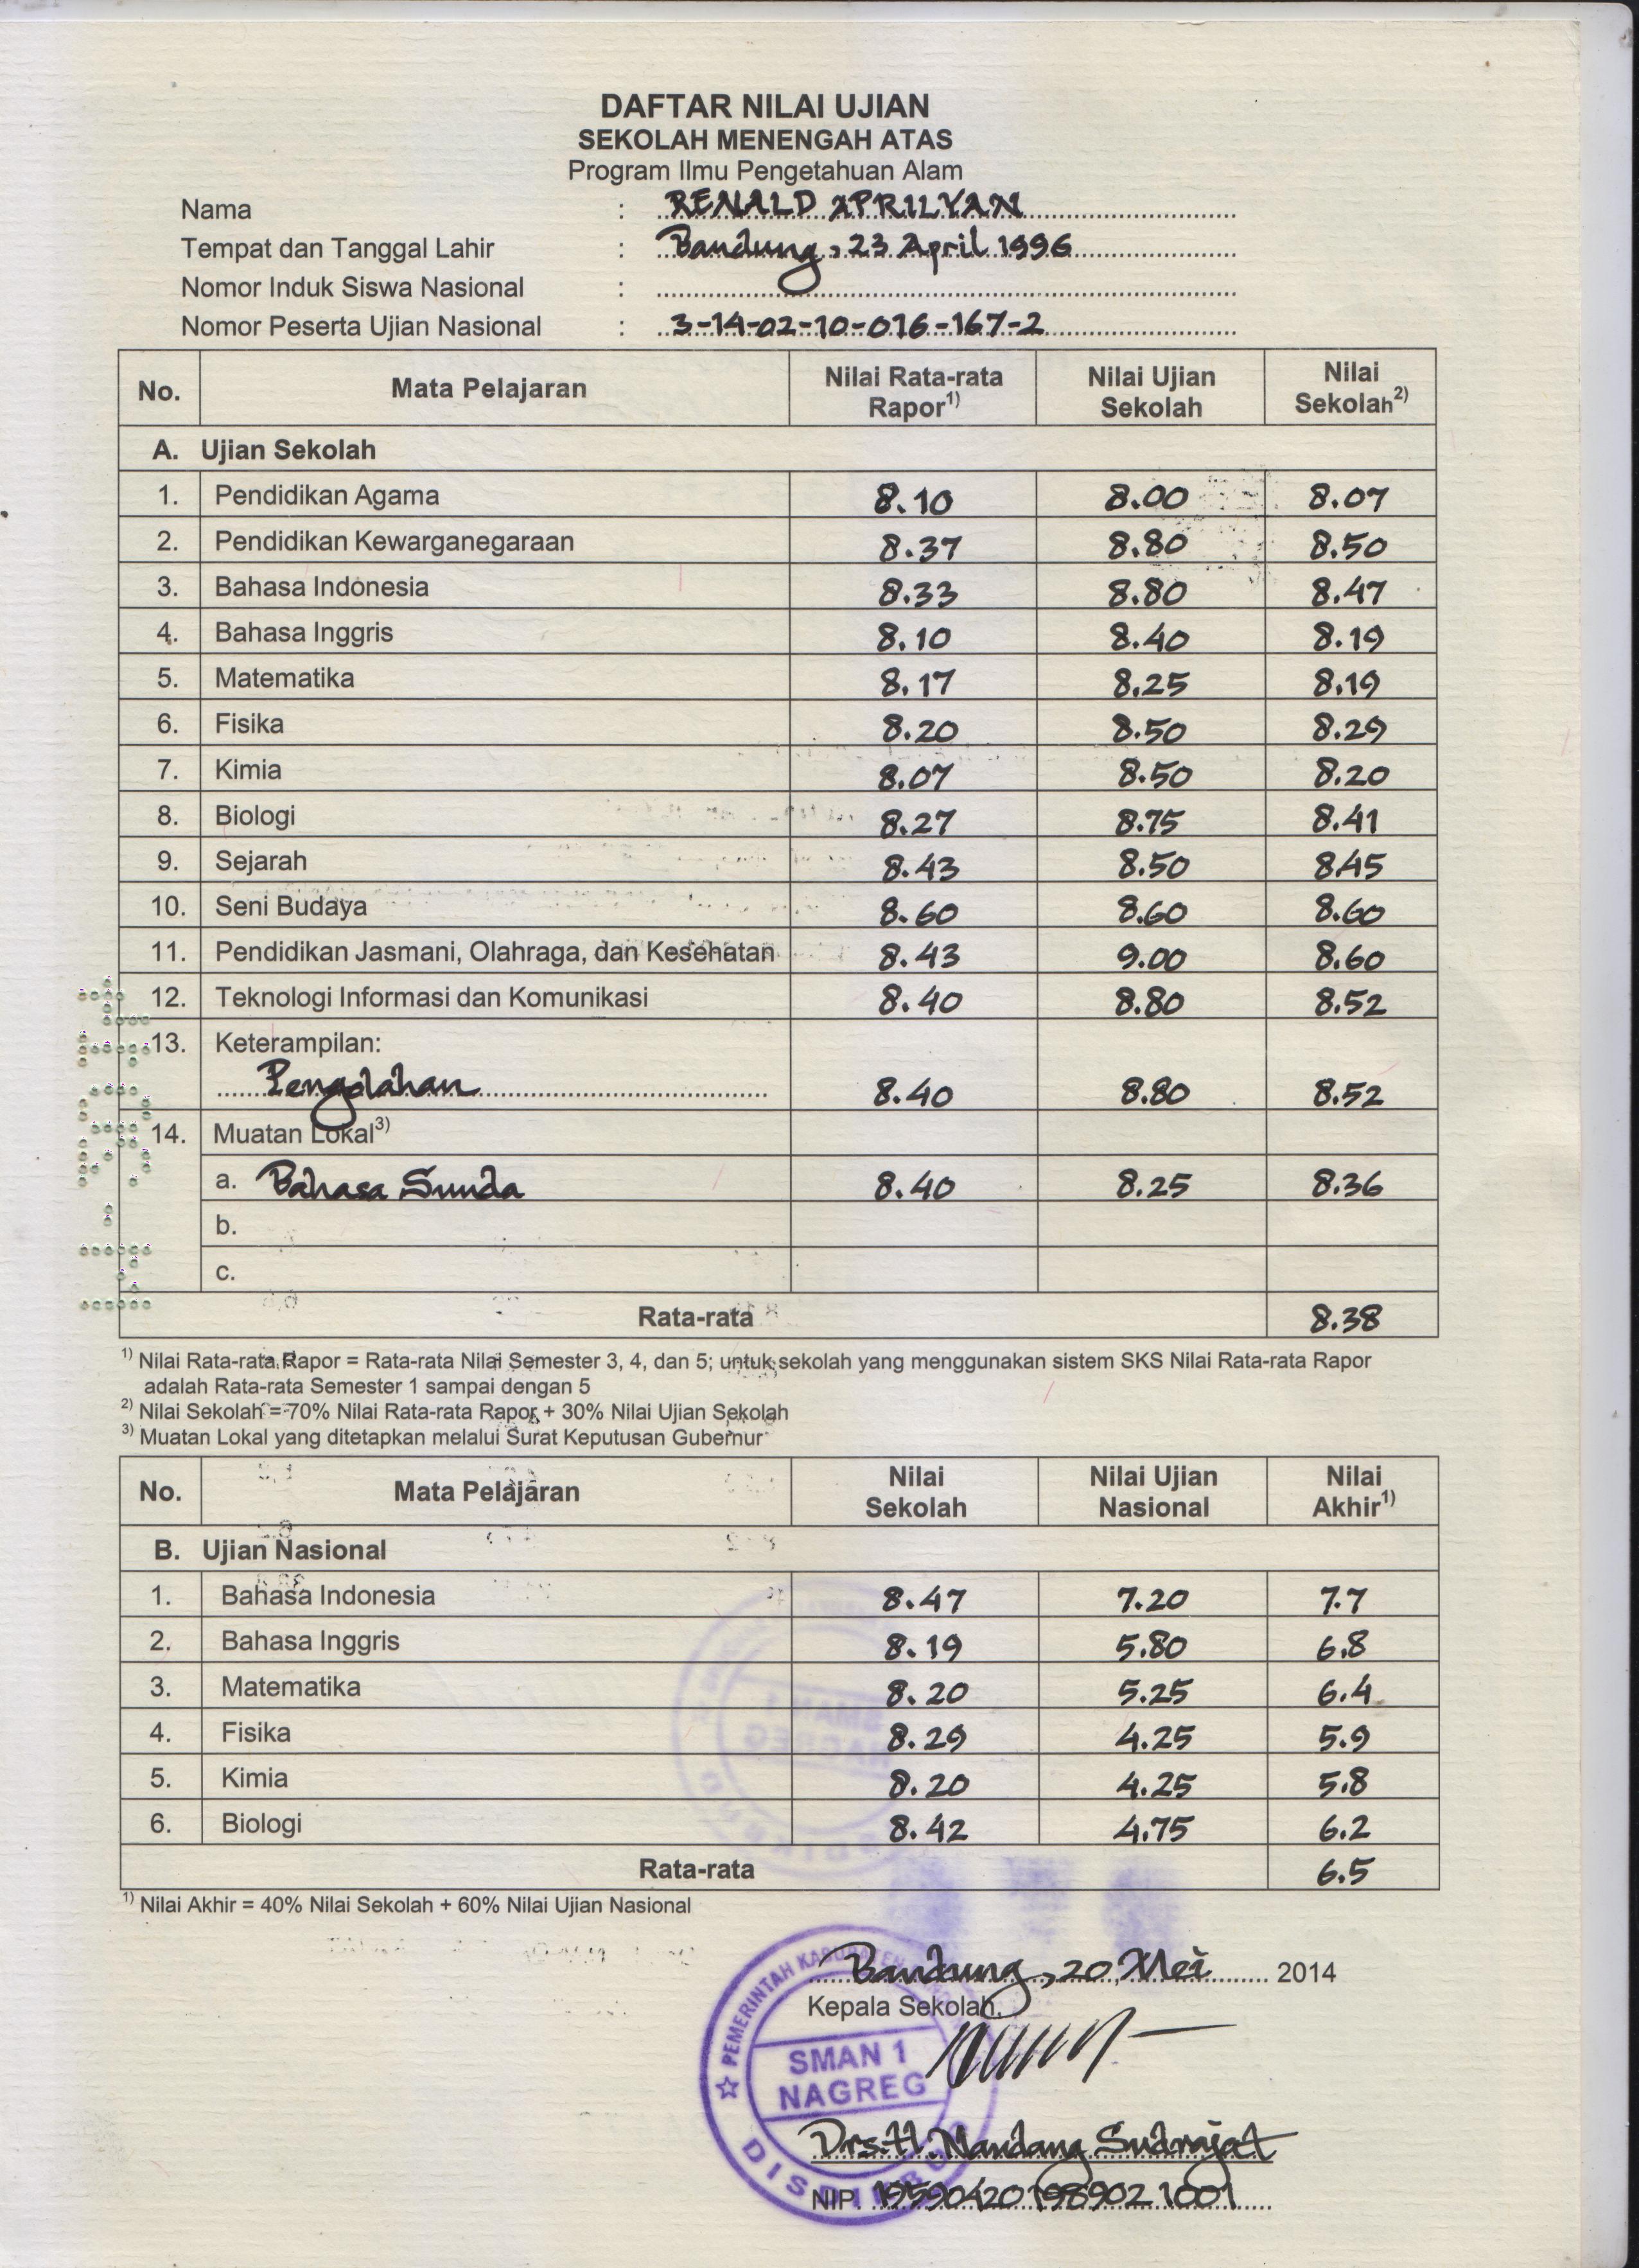 DAFTAR NILAI UJIAN
SEKOLAH MENENGAH ATAS
Program Ilmu Pengetahuan Alam
Nama : RENALD APRILYAN
Tempat dan Tanggal Lahir : Bandung, 23 April 1996
Nomor Induk Siswa Nasional :
Nomor Peserta Ujian Nasional : 3-14-02-10-016-167-2
No. Mata Pelajaran Nilai Rata-rata Rapor1) Nilai Ujian Sekolah Nilai Sekolah2)
A. Ujian Sekolah
1. Pendidikan Agama 8.10 8.00 8.07
2. Pendidikan Kewarganegaraan 8.37 8.80 8.50
3. Bahasa Indonesia 8.33 8.80 8.47
4. Bahasa Inggris 8.10 8.40 8.19
5. Matematika 8.17 8.25 8.19
6. Fisika 8.20 8.50 8.29
7. Kimia 8.07 8.50 8.20
8. Biologi 8.27 8.75 8.41
9. Sejarah 8.43 8.50 8.45
10. Seni Budaya 8.60 8.60 8.60
11. Pendidikan Jasmani, Olahraga, dan Kesehatan 8.43 9.00 8.60
12. Teknologi Informasi dan Komunikasi 8.40 8.80 8.52
13. Keterampilan:
Pengolahan 8.40 8.80 8.52
14. Muatan Lokal3)
a. Bahasa Sunda 8.40 8.25 8.36
b.
c.
Rata-rata 8.38
1) Nilai Rata-rata Rapor = Rata-rata Nilai Semester 3, 4, dan 5; untuk sekolah yang menggunakan sistem SKS Nilai Rata-rata Rapor
adalah Rata-rata Semester 1 sampai dengan 5
2) Nilai Sekolah = 70% Nilai Rata-rata Rapor + 30% Nilai Ujian Sekolah
3) Muatan Lokal yang ditetapkan melalui Surat Keputusan Gubernur
No. Mata Pelajaran Nilai Sekolah Nilai Ujian Nasional Nilai Akhir1)
B. Ujian Nasional
1. Bahasa Indonesia 8.47 7.20 7.7
2. Bahasa Inggris 8.19 5.80 6.8
3. Matematika 8.20 5.25 6.4
4. Fisika 8.29 4.25 5.9
5. Kimia 8.20 4.25 5.8
6. Biologi 8.42 4.75 6.2
Rata-rata 6.5
1) Nilai Akhir = 40% Nilai Sekolah + 60% Nilai Ujian Nasional
Bandung, 20 Mei 2014
Kepala Sekolah,
PEMERINTAH KABUPATEN
SMAN 1
NAGREG
DISDIKBUD
Drs. H. Nandang Sudrajat
NIP. 195904201989021001